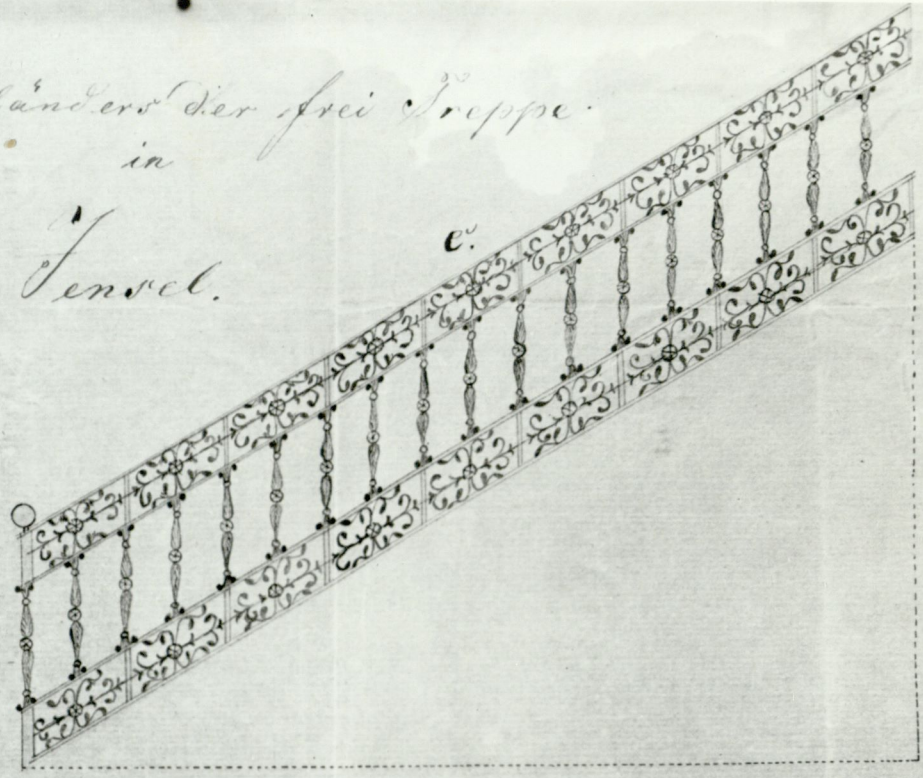 länders der frei Treppe
in
Jensel.
e.